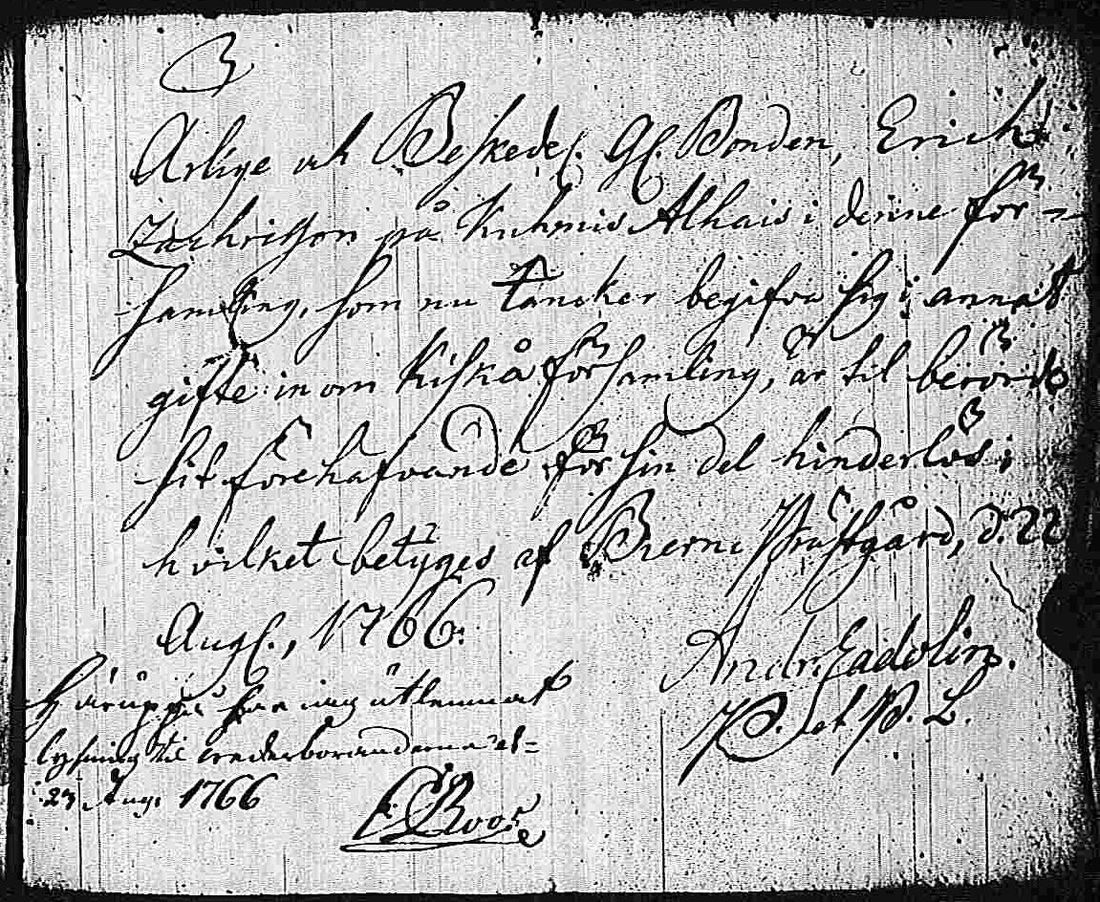 Ärlige och Beskedel. Gl. Bonden, Erich
Zachrisson på Kuhmis Alhais i denne för-
samling, som nu täncker begifva sig i annat
gifte in om Kiskå församling, är til berörde
sit förehafvande för sin del hinderlös;
hvilket betyges af Bierno Prästgård, d. 22
Aug., 1766.
Andr. Eadolin.
P. et P. L.
Häruppå har iag utlemnat
lysning til
23 Aug. 1766
Roos